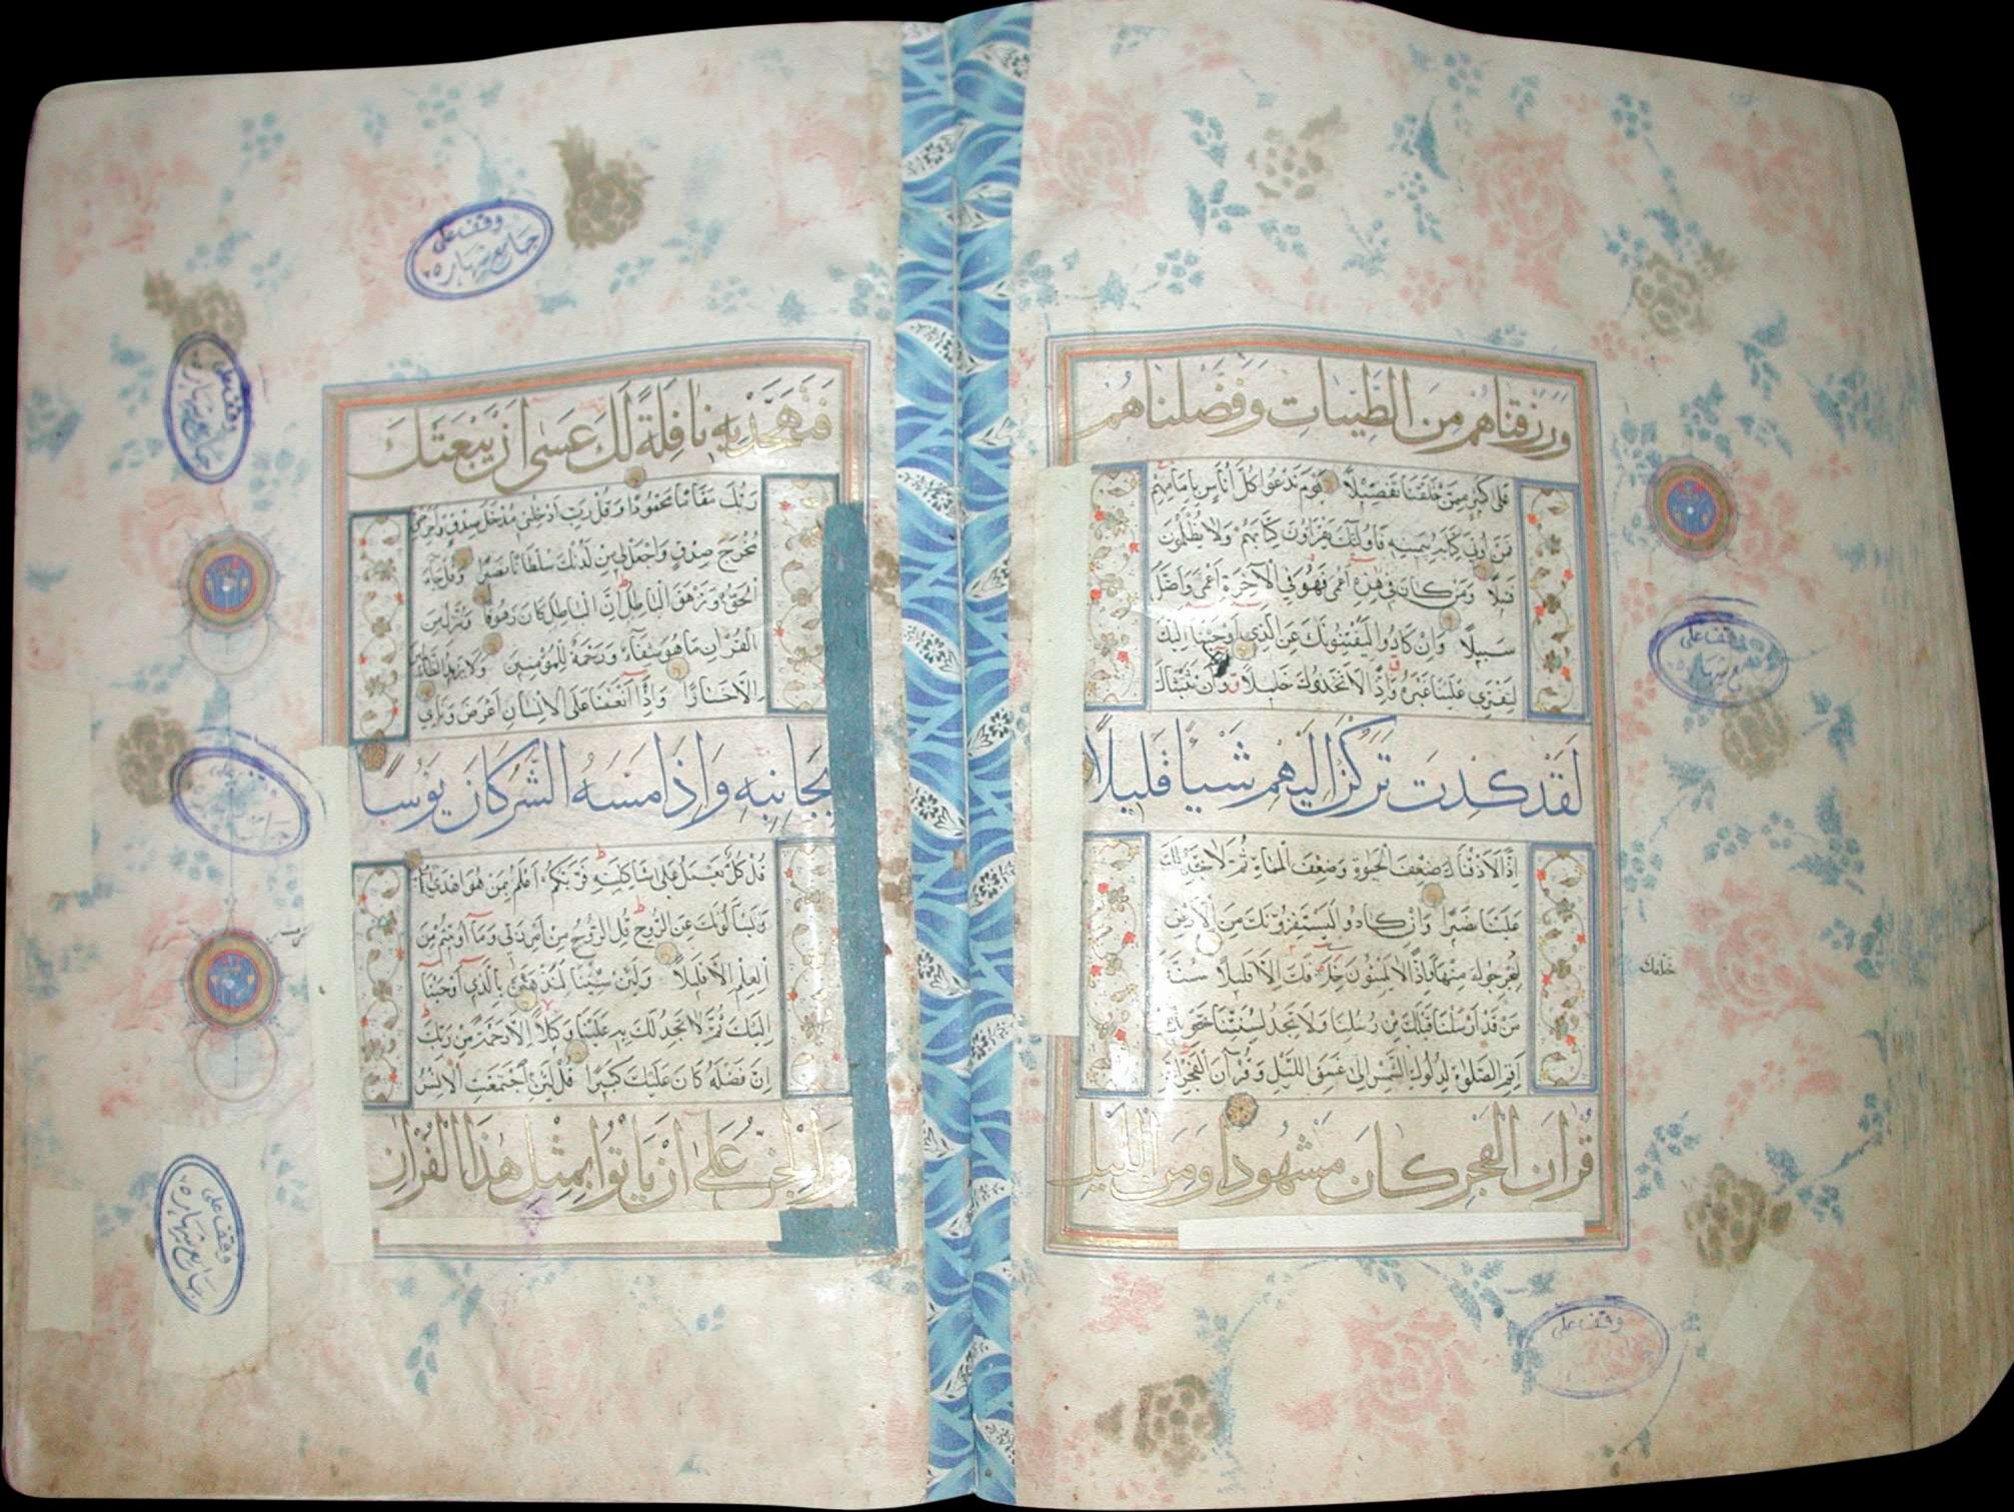 وَرَزَقْنَاهُم مِنَ الطَّيِّبَاتِ وَفَضَّلْنَاهُمْ
عَلَى كَثِيرٍ مِمَّنْ خَلَقْنَا تَفْضِيلًا يَوْمَ نَدْعُوا كُلَّ أُنَاسٍ بِإِمَامِهِمْ
فَمَنْ أُوتِيَ كِتَابَهُ بِيَمِينِهِ فَأُولَئِكَ يَقْرَأُونَ كِتَابَهُمْ وَلَا يُظْلَمُونَ
فَتِيلًا وَمَنْ كَانَ فِي هَذِهِ أَعْمَى فَهُوَ فِي الْآخِرَةِ أَعْمَى وَأَضَلُّ
سَبِيلًا وَإِنْ كَادُوا لَيَفْتِنُونَكَ عَنِ الَّذِي أَوْحَيْنَا إِلَيْكَ
لِتَفْتَرِيَ عَلَيْنَا غَيْرَهُ وَإِذًا لَاتَّخَذُوكَ خَلِيلًا وَلَوْلَا أَنْ ثَبَّتْنَاكَ
لَقَدْ كِدْتَ تَرْكَنُ إِلَيْهِمْ شَيْئًا قَلِيلًا
إِذًا لَأَذَقْنَاكَ ضِعْفَ الْحَيٰوةِ وَضِعْفَ الْمَمَاتِ ثُمَّ لَا تَجِدُ لَكَ
عَلَيْنَا نَصِيرًا وَإِنْ كَادُوا لَيَسْتَفِزُّونَكَ مِنَ الْأَرْضِ
لِيُخْرِجُوكَ مِنْهَا وَإِذًا لَا يَلْبَثُونَ خِلَافَكَ إِلَّا قَلِيلًا سُنَّةَ
مَنْ قَدْ أَرْسَلْنَا قَبْلَكَ مِنْ رُسُلِنَا وَلَا تَجِدُ لِسُنَّتِنَا تَحْوِيلًا
أَقِمِ الصَّلٰوةَ لِدُلُوكِ الشَّمْسِ إِلَى غَسَقِ اللَّيْلِ وَقُرْآنَ الْفَجْرِ إِنَّ
قُرْآنَ الْفَجْرِ كَانَ مَشْهُودًا وَمِنَ اللَّيْلِ
خلفك
وقف على
وقف على
فَتَهَجَّدْ بِهِ نَافِلَةً لَكَ عَسَى أَنْ يَبْعَثَكَ
رَبُّكَ مَقَامًا مَحْمُودًا وَقُلْ رَبِّ أَدْخِلْنِي مُدْخَلَ صِدْقٍ وَأَخْرِجْنِي
مُخْرَجَ صِدْقٍ وَاجْعَلْ لِي مِنْ لَدُنْكَ سُلْطَانًا نَصِيرًا وَقُلْ جَاءَ
الْحَقُّ وَزَهَقَ الْبَاطِلُ إِنَّ الْبَاطِلَ كَانَ زَهُوقًا وَنُنَزِّلُ مِنَ
الْقُرْآنِ مَا هُوَ شِفَاءٌ وَرَحْمَةٌ لِلْمُؤْمِنِينَ وَلَا يَزِيدُ الظَّالِمِينَ
إِلَّا خَسَارًا وَإِذَا أَنْعَمْنَا عَلَى الْإِنْسَانِ أَعْرَضَ وَنَأَى
بِجَانِبِهِ وَإِذَا مَسَّهُ الشَّرُّ كَانَ يَؤُسًا
قُلْ كُلٌّ يَعْمَلُ عَلَى شَاكِلَتِهِ فَرَبُّكُمْ أَعْلَمُ بِمَنْ هُوَ أَهْدَى
وَيَسْأَلُونَكَ عَنِ الرُّوحِ قُلِ الرُّوحُ مِنْ أَمْرِ رَبِّي وَمَا أُوتِيتُمْ مِنَ
الْعِلْمِ إِلَّا قَلِيلًا وَلَئِنْ شِئْنَا لَنَذْهَبَنَّ بِالَّذِي أَوْحَيْنَا
إِلَيْكَ ثُمَّ لَا تَجِدُ لَكَ بِهِ عَلَيْنَا وَكِيلًا إِلَّا رَحْمَةً مِنْ رَبِّكَ
إِنَّ فَضْلَهُ كَانَ عَلَيْكَ كَبِيرًا قُلْ لَئِنِ اجْتَمَعَتِ الْإِنْسُ
وَالْجِنُّ عَلَى أَنْ يَأْتُوا بِمِثْلِ هَذَا الْقُرْآنِ
وقف على
جامع شهاره
وقف على
جامع شهاره
وقف على
جامع شهاره